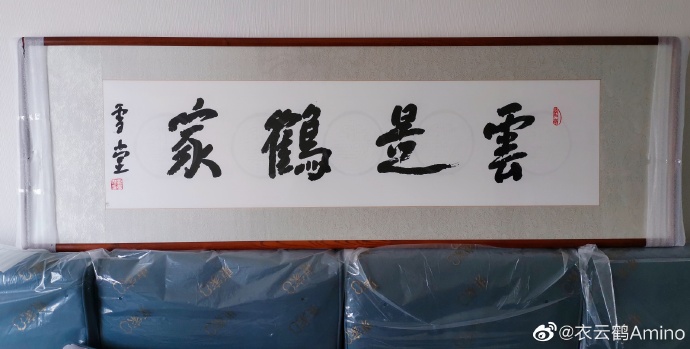 雲是鶴家
雪堂
@衣云鹤Amino